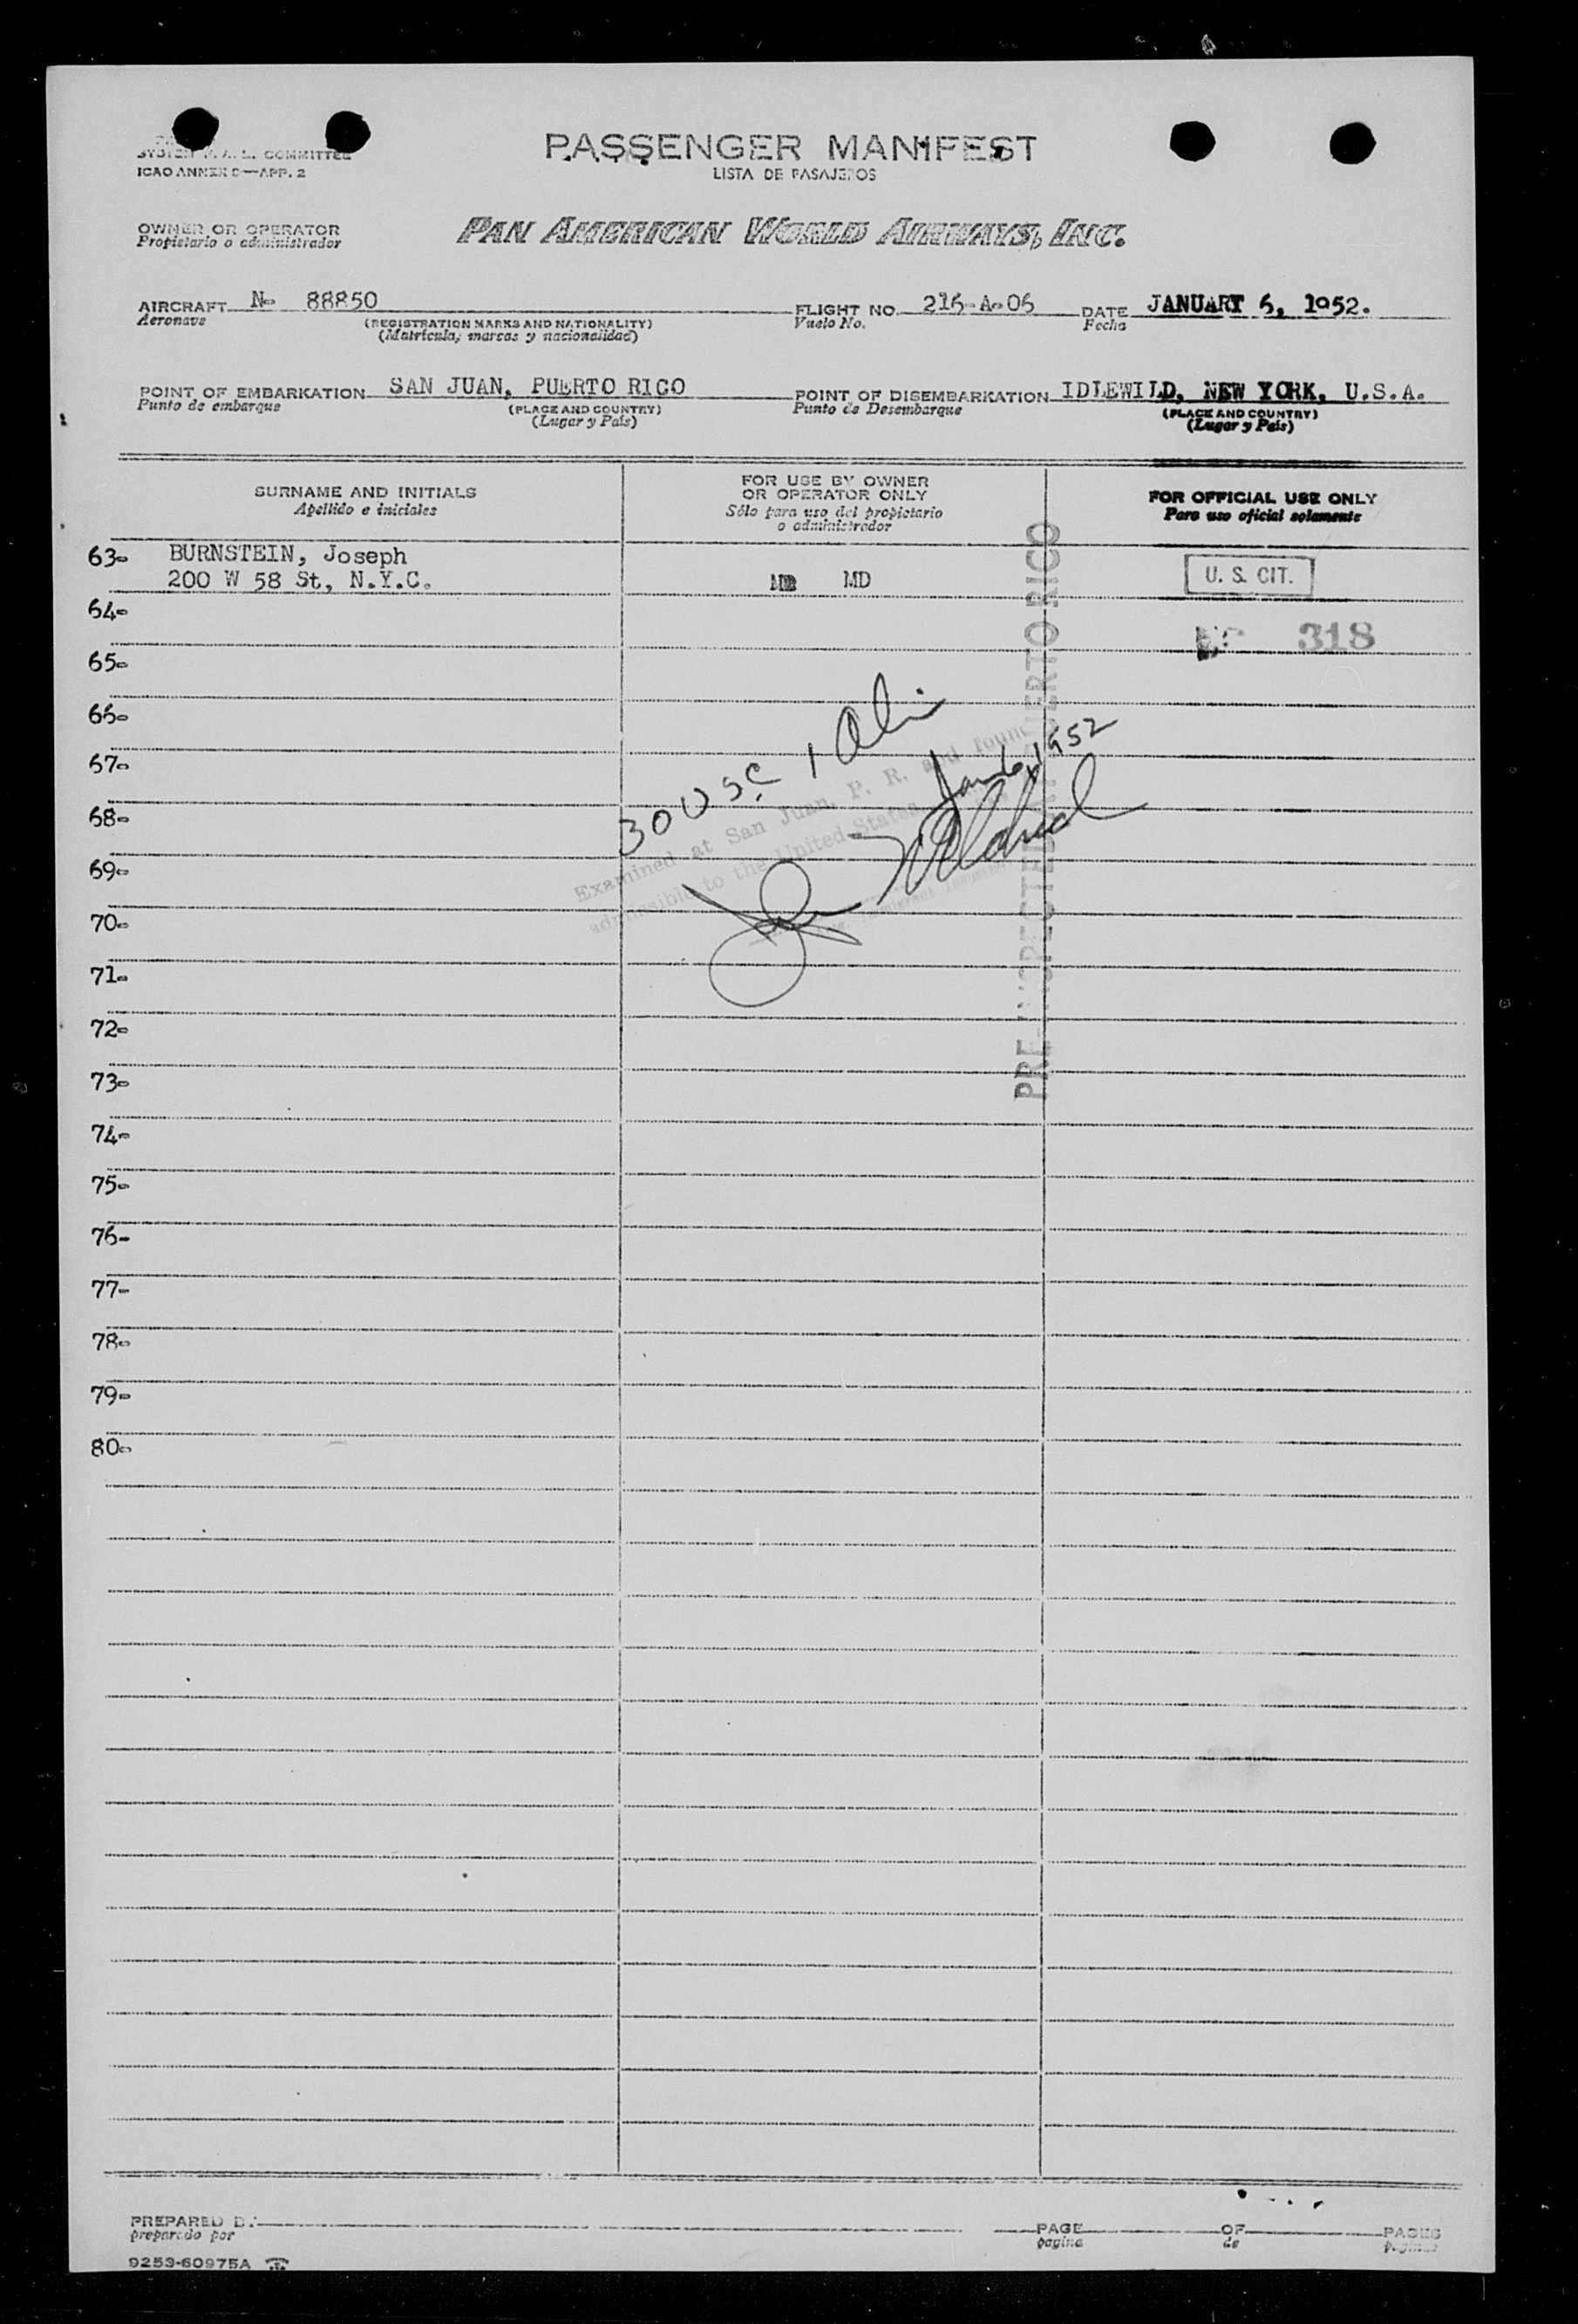 PASSENGER MANIFEST
LISTA DE PASAJEROS
SYSTEM COMMITTEE
ICAO ANNEX 9—APP. 2
OWNER OR OPERATOR
Propietario o administrador
PAN AMERICAN WORLD AIRWAYS, INC.
AIRCRAFT N- 88850 FLIGHT NO. 216-A-06 DATE JANUARY 6, 1952.
Aeronave (REGISTRATION MARKS AND NATIONALITY) Vuelo No. Fecha
(Matrícula, marcas y nacionalidad)
POINT OF EMBARKATION SAN JUAN, PUERTO RICO POINT OF DISEMBARKATION IDLEWILD, NEW YORK, U.S.A.
Punto de embarque (PLACE AND COUNTRY) Punto de Desembarque (PLACE AND COUNTRY)
(Lugar y País) (Lugar y País)
SURNAME AND INITIALS
Apellido e iniciales
FOR USE BY OWNER
OR OPERATOR ONLY
Sólo para uso del propietario
o administrador
FOR OFFICIAL USE ONLY
Para uso oficial solamente
63- BURNSTEIN, Joseph
200 W 58 St, N.Y.C. MD U. S. CIT.
64-
318
65-
66-
67-
68-
69-
70-
71-
72-
73-
74-
75-
76-
77-
78-
79-
80-
30 USC 1 Ali
Jan 6, 1952
Examined at San Juan, P. R. and found
admissible to the United States
PRE-INSPECTED AT PUERTO RICO
PREPARED BY
preparado por
PAGE OF PAGES
pagina de paginas
9253-60975A